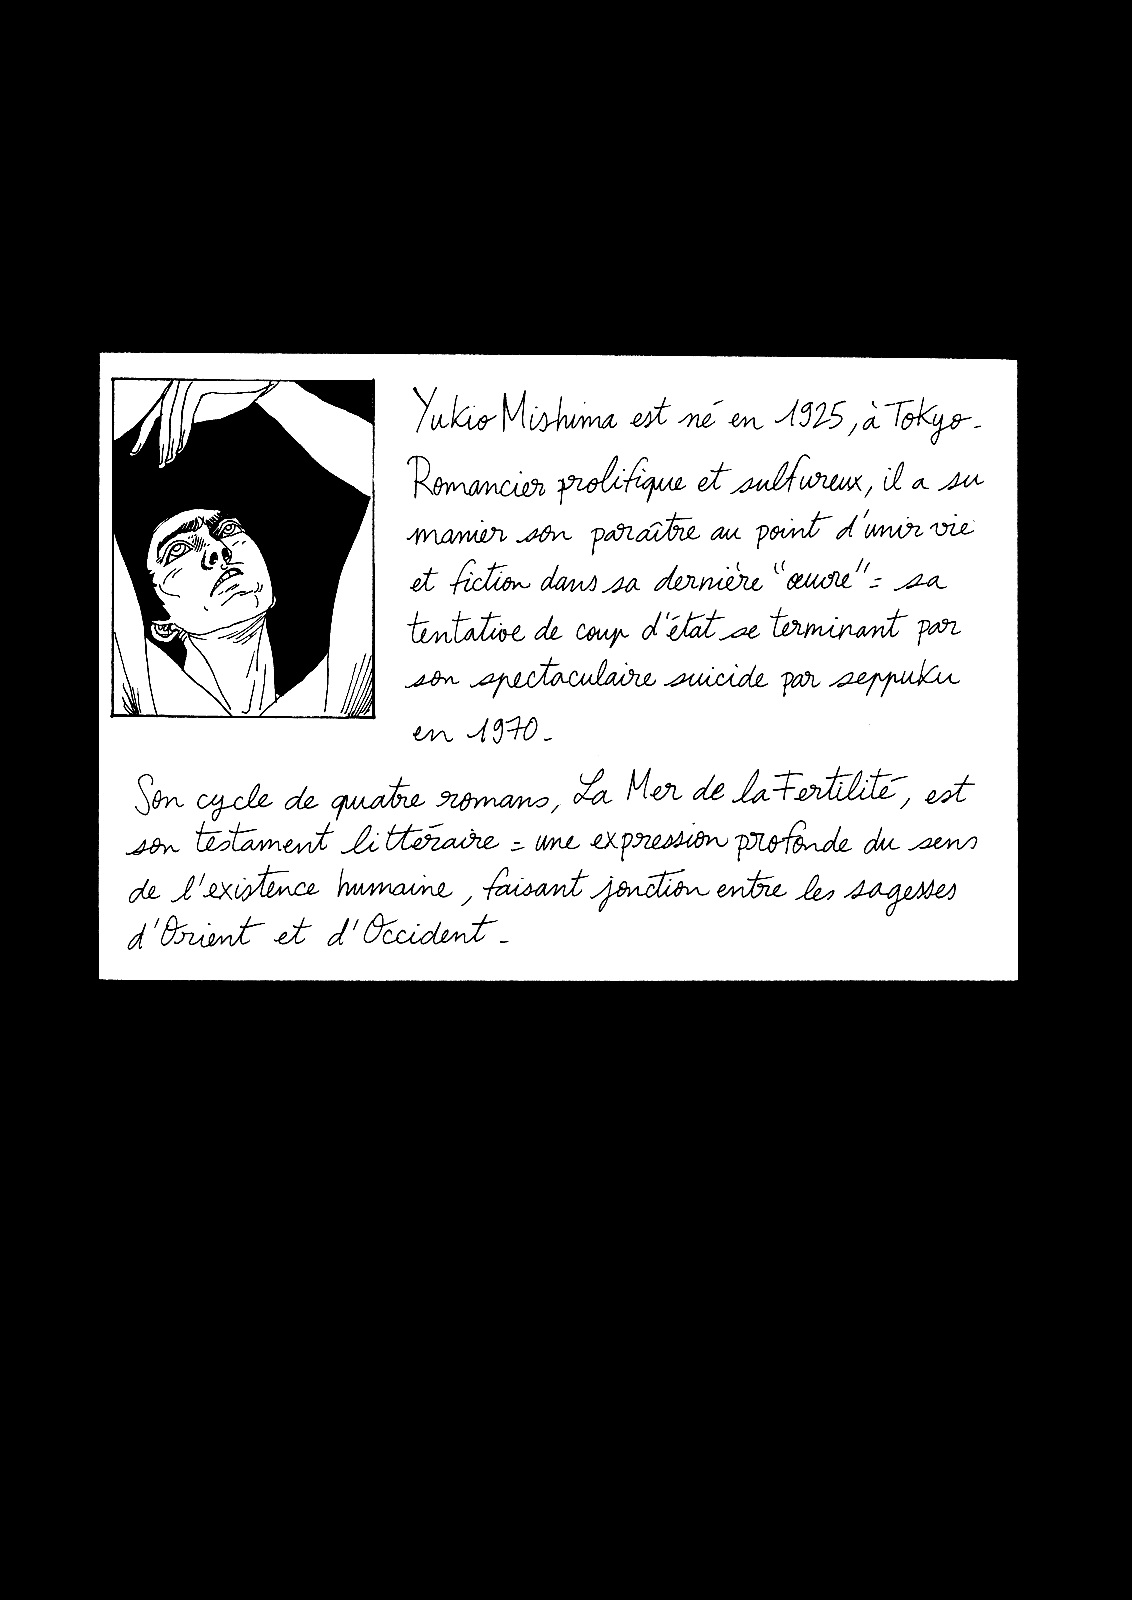 Yukio Mishima est né en 1925, à Tokyo.
Romancier prolifique et sulfureux, il a su
manier son paraître au point d'unir vie
et fiction dans sa dernière "œuvre" : sa
tentative de coup d'état se terminant par
son spectaculaire suicide par seppuku
en 1970.
Son cycle de quatre romans, La Mer de la Fertilité, est
son testament littéraire : une expression profonde du sens
de l'existence humaine, faisant jonction entre les sagesses
d'Orient et d'Occident.